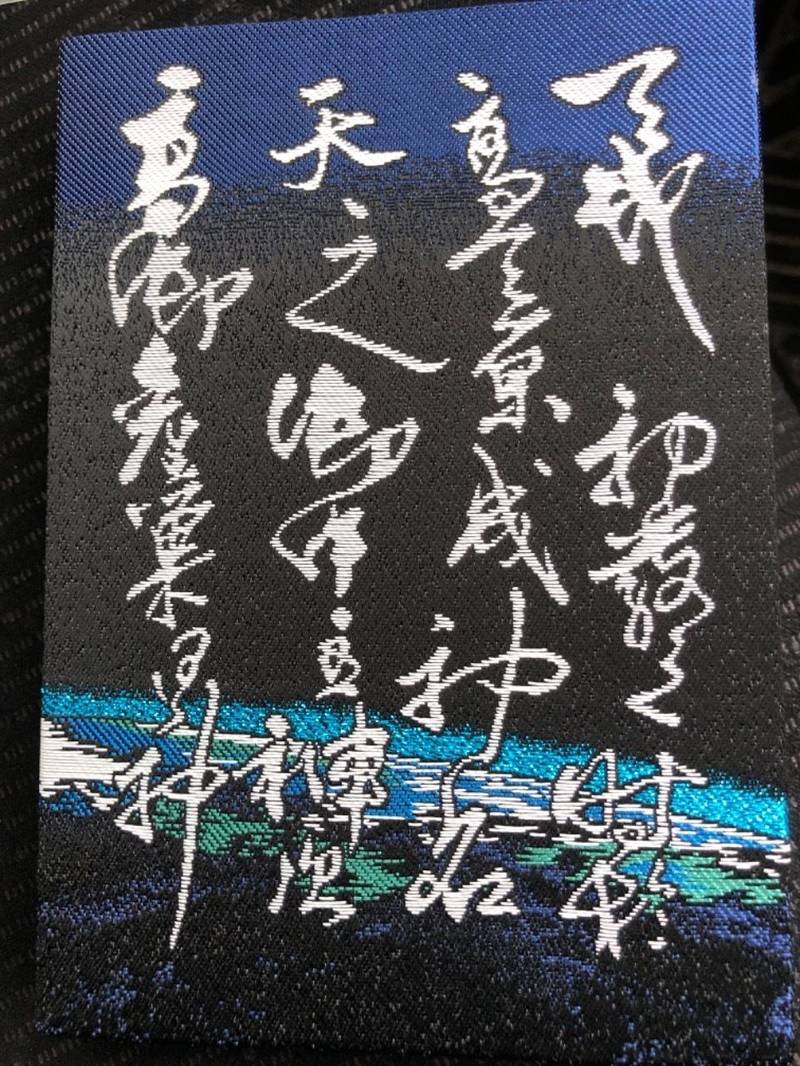 天地初發之時於
高天原成神名
天之御中主神次
高御産巣日神